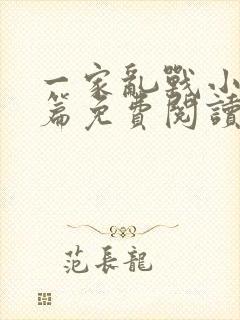 一家亂戰小
篇免費閱讀
范長龍